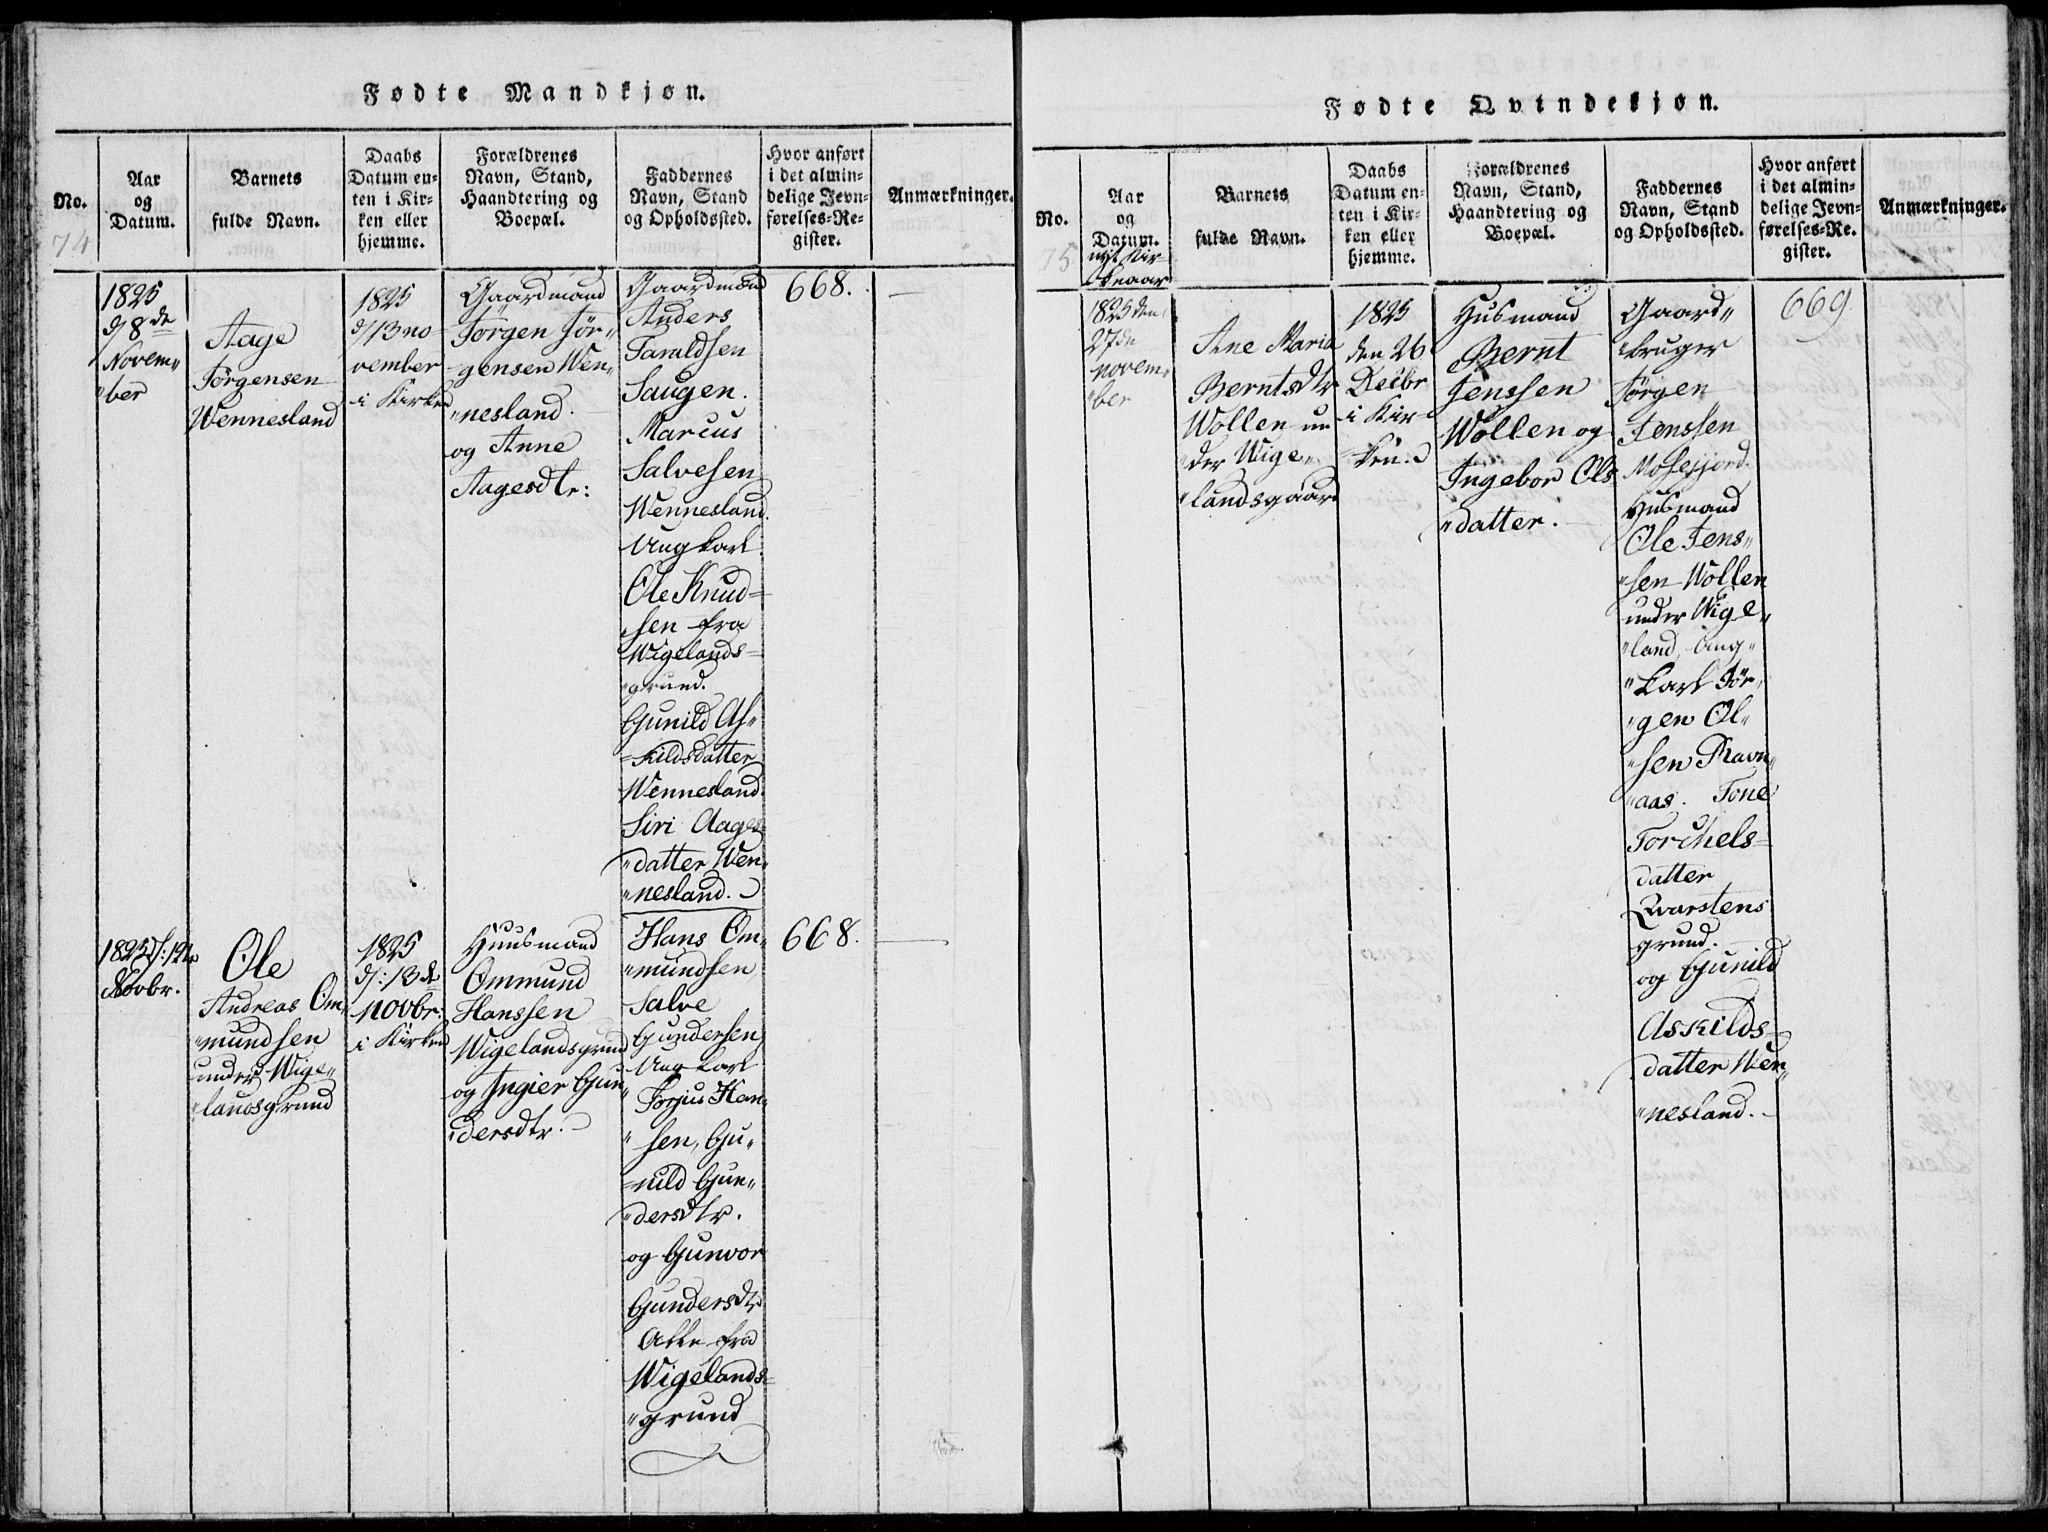 Fødte Mandkjøn.
No.
Aar
og
Datum.
Barnets
fulde Navn.
Daabs
Datum en-
ten i Kir-
ken eller
hjemme.
Forældrenes
Navn, Stand,
Haandtering og
Boepæl.
Faddernes
Navn, Stand
og Opholdssted.
Hvor anført
i det almin-
delige Jevn-
førelses-Re-
gister.
Anmærkninger.
74
1825
d/8de
Novem-
"ber
Aage
Jørgensen
Wennesland
1825
d/13 no
vember
i Kirken
Gaardmand
Jørgen Jør-
gensen Wen-
"nesland.
og Anne
Aagesdtr:
Gaardmand
Anders
Taraldsen
Saugen.
Marcus
Salvesen
Wennesland.
Ungkarl
Ole Knud=
sen fra
Wigelands=
"grund.
Gunild As-
=kildsdatter
Wennesland.
Siri Aages
"datter Wen-
"nesland.
668.
1825 d/:12te
Novbr.
Ole
Andreas Om-
"mundsen
under Wige-
"landsgrund
1825
d/:13de
Novbr:
i Kirken
Huusmand
Ommund
Hanssen
Wigelandsgrund
og Ingier Gun-
"dersdtr.
Hans Om-
"mundsen
Salve
Gundersen
Ungkarl
Torjus Han-
"sen, Gu-
=nild Gun-
"dersdtr.
og Gunvor
Gundersdtr
Alle fra
Wigelands=
"grund
668.
Fødte Qvindekjøn.
No.
Aar
og
Datum.
Barnets
fulde Navn.
Daabs
Datum en-
ten i Kir-
ken eller
hjemme.
Forældrenes
Navn, Stand,
Haandtering og
Boepæl.
Faddernes
Navn, Stand
og Opholdssted.
Hvor anført
i det almin-
delige Jevn-
førelses-Re-
gister.
Anmærkninger.
75
nyt Kir-
keaar
1825 den
27de
novem-
"ber
Ane Maria
Berntsdtr
Wollen un
"der Wige-
"landsgaard
1825
den 26
Decbr
i Kir-
ken.
Husmand
Bernt
Jenssen
Wollen og
Ingebor Ols
"datter.
Gaard-
"bruger
Jørgen
Jenssen
Mosefjord.
Husmand
Ole Jens-
"sen Wollen
under Wige-
"land, Ung-
"karl Jør-
"gen Ol-
"sen Ravn-
"aas. Tone
Torchels=
datter
Qvarstens
grund.
og Gunild
Askilds=
datter Wen-
"nesland.
669.